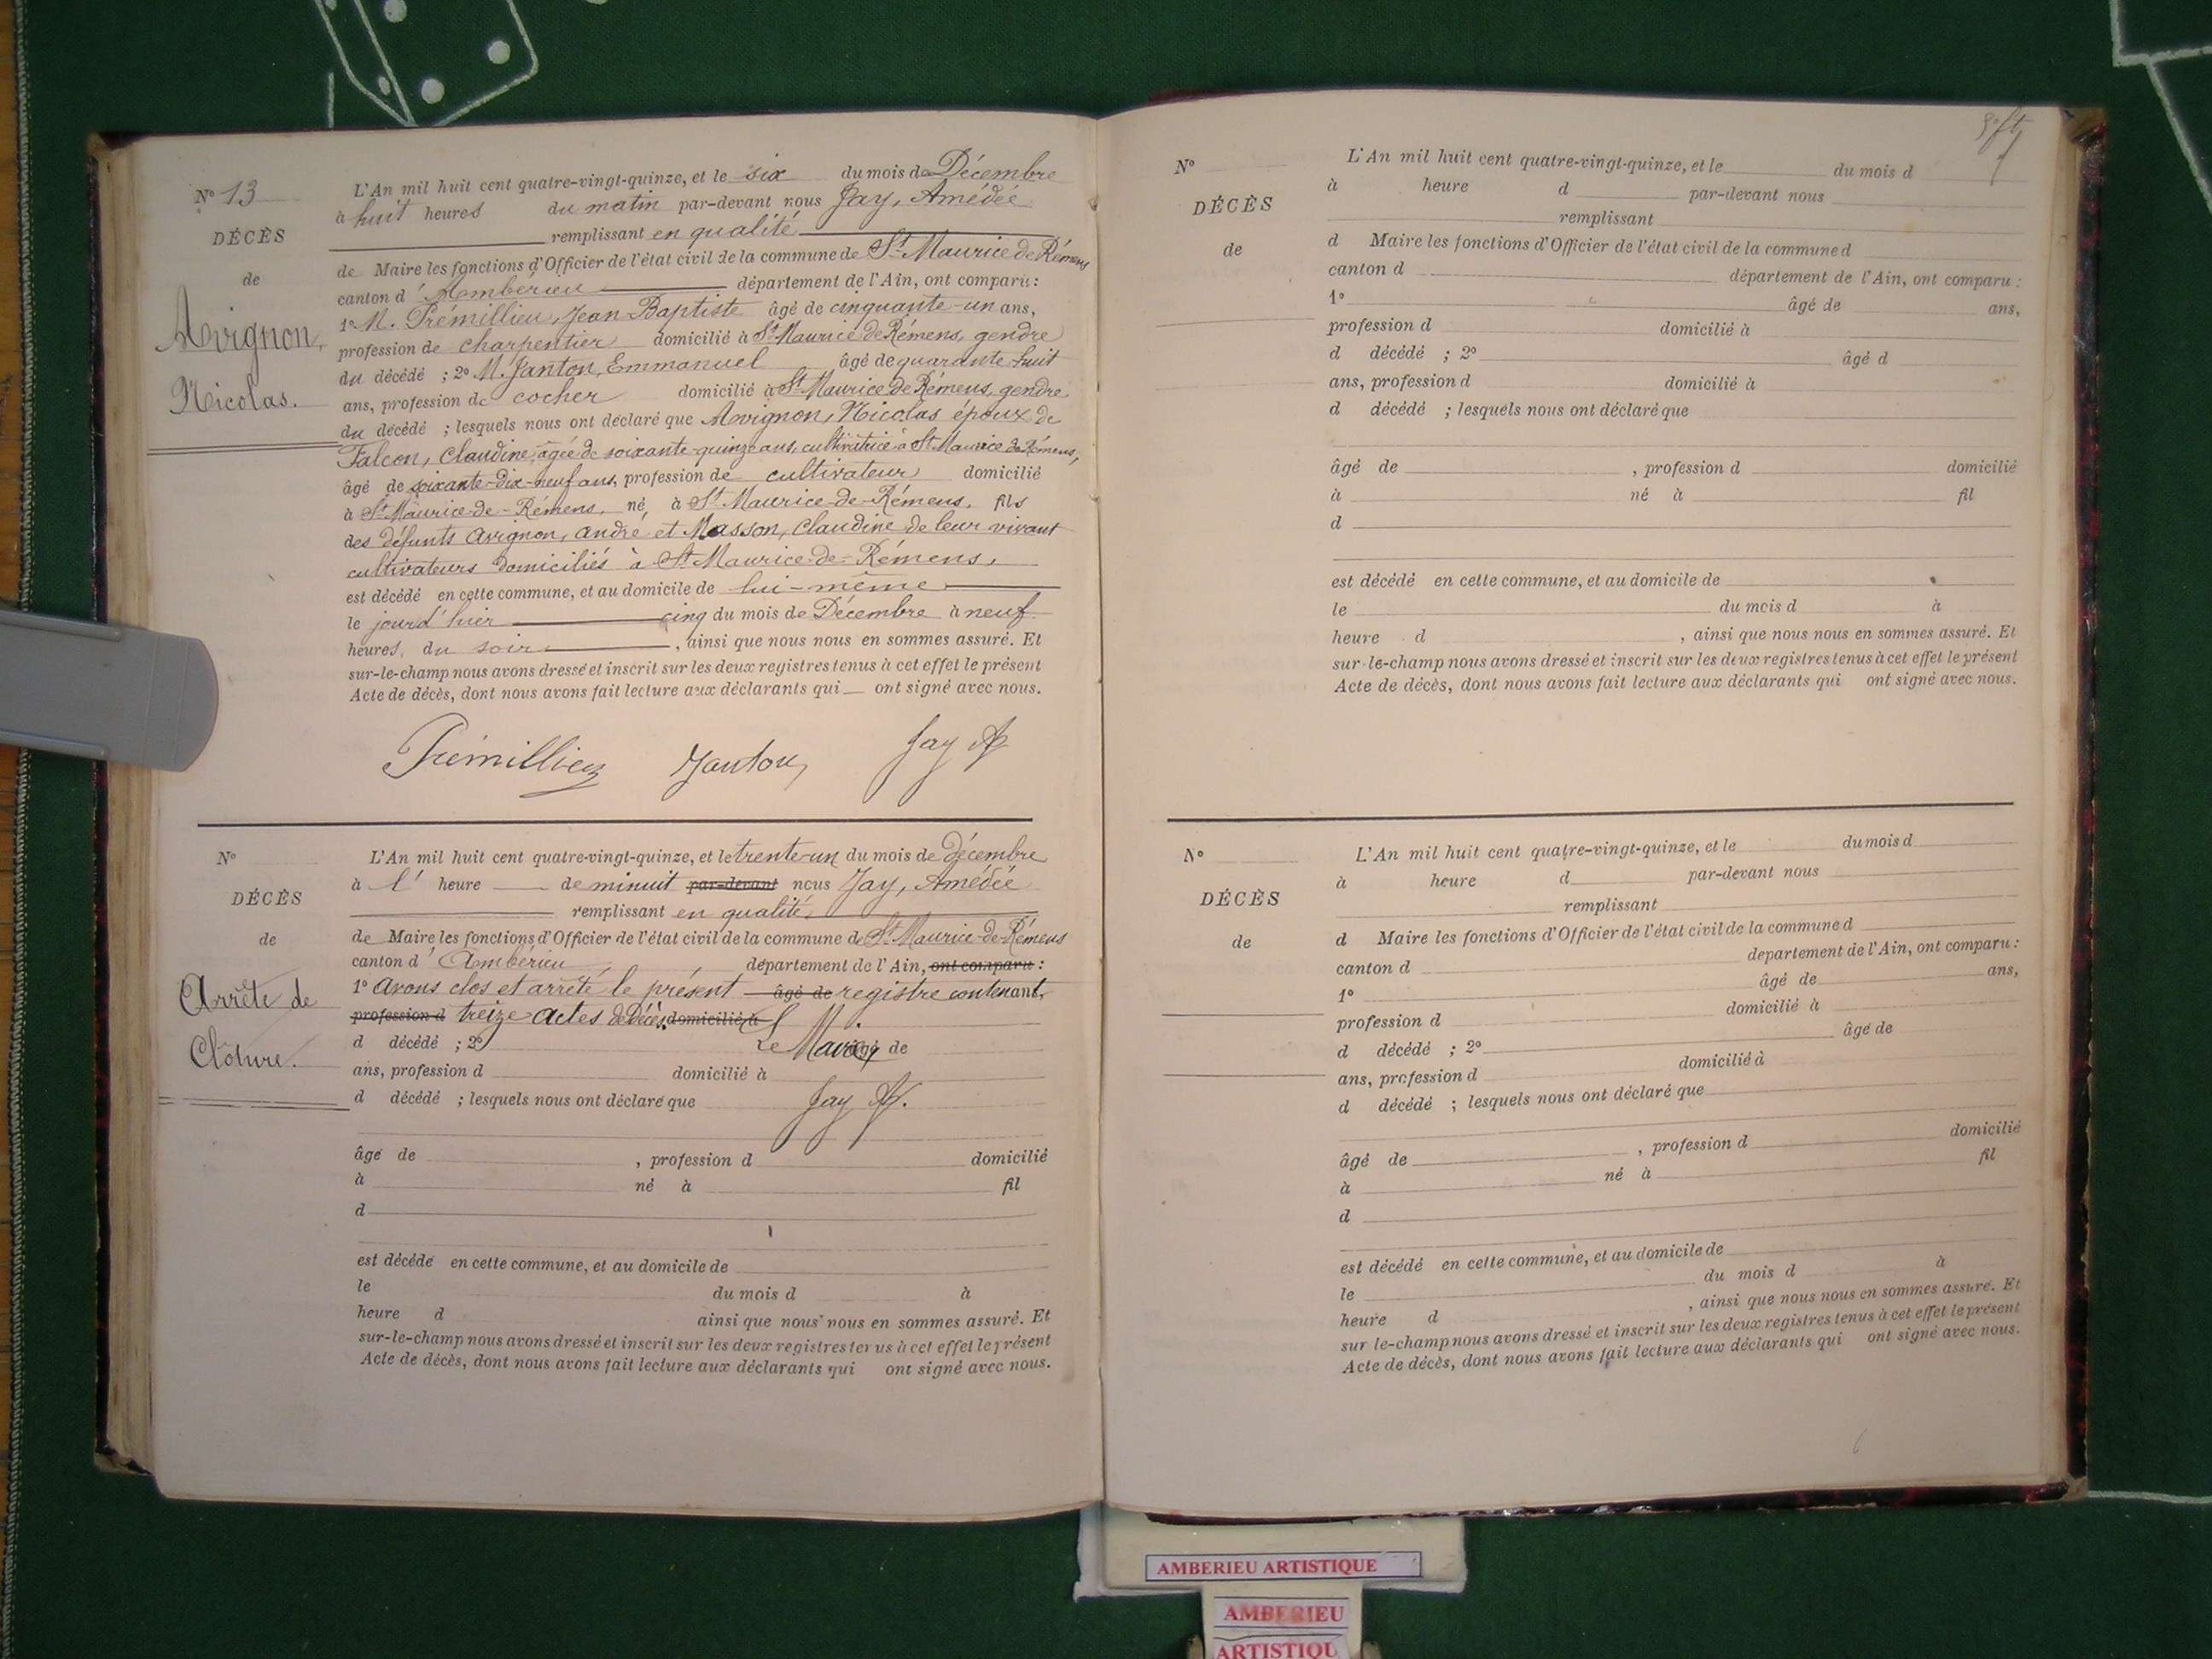 Nº 13
DÉCÈS
de
Avignon,
Nicolas.
L'An mil huit cent quatre-vingt-quinze, et le six du mois de Décembre
à huit heures du matin par-devant nous Jay, Amédée
remplissant en qualité
de Maire les fonctions d'Officier de l'état civil de la commune de St Maurice de Rémens
canton d'Ambérieu département de l'Ain, ont comparu :
1º M. Prémillieu, Jean Baptiste âgé de cinquante-un ans,
profession de charpentier domicilié à St Maurice de Rémens, gendre
du décédé ; 2º M. Janton, Emmanuel âgé de quarante-huit
ans, profession de cocher domicilié à St Maurice de Rémens, gendre
du décédé ; lesquels nous ont déclaré que Avignon, Nicolas époux de
Falcon, Claudine, âgée de soixante-quinze ans, cultivatrice à St Maurice de Rémens,
âgé de soixante-dix-neuf ans, profession de cultivateur domicilié
à St Maurice-de-Rémens, né, à St Maurice-de-Rémens, fils
des défunts Avignon, André et Masson, Claudine de leur vivant
cultivateurs domiciliés à St Maurice-de-Rémens,
est décédé en cette commune, et au domicile de lui-même
le jourd'hier cinq du mois de Décembre à neuf
heures, du soir, ainsi que nous nous en sommes assuré. Et
sur-le-champ nous avons dressé et inscrit sur les deux registres tenus à cet effet le présent
Acte de décès, dont nous avons fait lecture aux déclarants qui ont signé avec nous.
Prémillieu Janton Jay A
Nº
DÉCÈS
de
Arrêté de
Clôture.
L'An mil huit cent quatre-vingt-quinze, et le trente-un du mois de décembre
à l' heure de minuit par-devant nous Jay, Amédée
remplissant en qualité
de Maire les fonctions d'Officier de l'état civil de la commune de St Maurice-de-Rémens
canton d'Ambérieu département de l'Ain, ont comparu :
1º avons clos et arrêté le présent âgé de registre contenant
profession d treize actes de Décès. domicilié à
d décédé ; 2º Le Maire, âgé de
ans, profession d domicilié à
d décédé ; lesquels nous ont déclaré que Jay A.
âgé de , profession d domicilié
à né à fil
d
est décédé en cette commune, et au domicile de
le du mois d à
heure d ainsi que nous nous en sommes assuré. Et
sur-le-champ nous avons dressé et inscrit sur les deux registres tenus à cet effet le présent
Acte de décès, dont nous avons fait lecture aux déclarants qui ont signé avec nous.
Nº
DÉCÈS
de
L'An mil huit cent quatre-vingt-quinze, et le du mois d
à heure d par-devant nous
remplissant
d Maire les fonctions d'Officier de l'état civil de la commune d
canton d département de l'Ain, ont comparu :
1º âgé de ans,
profession d domicilié à
d décédé ; 2º âgé d
ans, profession d domicilié à
d décédé ; lesquels nous ont déclaré que
âgé de , profession d domicilié
à né à fil
d
est décédé en cette commune, et au domicile de
le du mois d à
heure d , ainsi que nous nous en sommes assuré. Et
sur-le-champ nous avons dressé et inscrit sur les deux registres tenus à cet effet le présent
Acte de décès, dont nous avons fait lecture aux déclarants qui ont signé avec nous.
Nº
DÉCÈS
de
L'An mil huit cent quatre-vingt-quinze, et le du mois d
à heure d par-devant nous
remplissant
d Maire les fonctions d'Officier de l'état civil de la commune d
canton d département de l'Ain, ont comparu :
1º âgé de ans,
profession d domicilié à
d décédé ; 2º âgé de
ans, profession d domicilié à
d décédé ; lesquels nous ont déclaré que
âgé de , profession d domicilié
à né à fil
d
est décédé en cette commune, et au domicile de
le du mois d à
heure d , ainsi que nous nous en sommes assuré. Et
sur le-champ nous avons dressé et inscrit sur les deux registres tenus à cet effet le présent
Acte de décès, dont nous avons fait lecture aux déclarants qui ont signé avec nous.
AMBERIEU ARTISTIQUE
AMBERIEU
ARTISTIQU